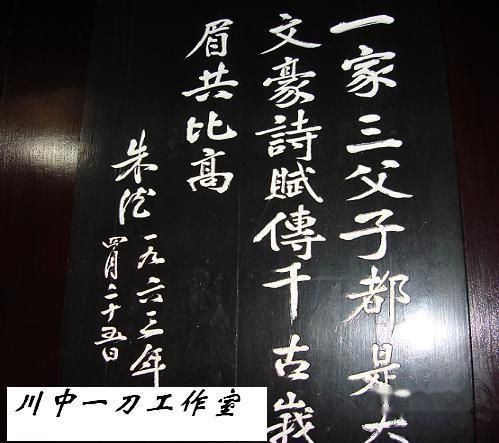 一家三父子都是大
文豪詩賦傳千古峩
眉共比高
朱德一九六三年
四月二十五日
川中一刀工作室